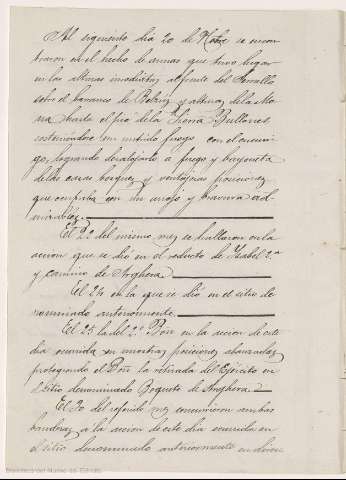 Al siguiente dia 20 de Nobre se encon
traron en el hecho de armas que tuvo lugar
en las alturas inmediatas al frente del Serrallo
sobre el barranco de y alturas de la Mo
na hasta el pié de la Sierra Bullones,
sosteniendose en nutrido fuego con el enemi
go, logrando desalojarlo a fuego y bayoneta
de las casas bosques y ventajosas posiciones
que ocupaba con un arrojo y bravura ad
mirables.
El 22 del mismo mes se hallaron en la
accion que se dió en el reducto de Isabel 2ª
y camino de Anghera
El 24 en la que se dio en el sitio de
nominado anteriormente.
El 25 la del 2º Bon en la accion de este
dia ocurrida en nuestras posiciones abanzadas
protegiendo el Bon la retirada del Ejército en
el sitio denominado Boquete de Anghera
El 30 del referido mes concurrieron ambas
banderas a la accion de este dia ocurrida en
el sitio denominado anteriormente